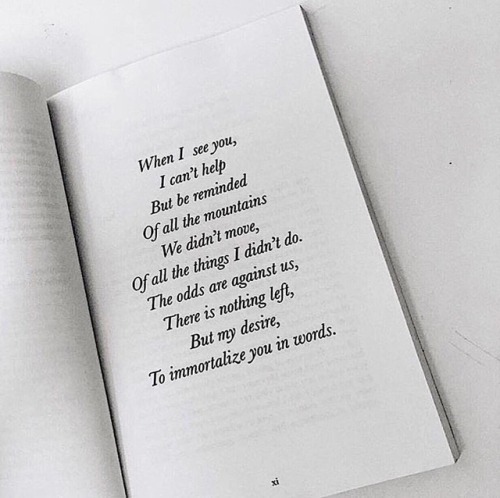 When I see you,
I can't help
But be reminded
Of all the mountains
We didn't move,
Of all the things I didn't do.
The odds are against us,
There is nothing left,
But my desire,
To immortalize you in words.
xi